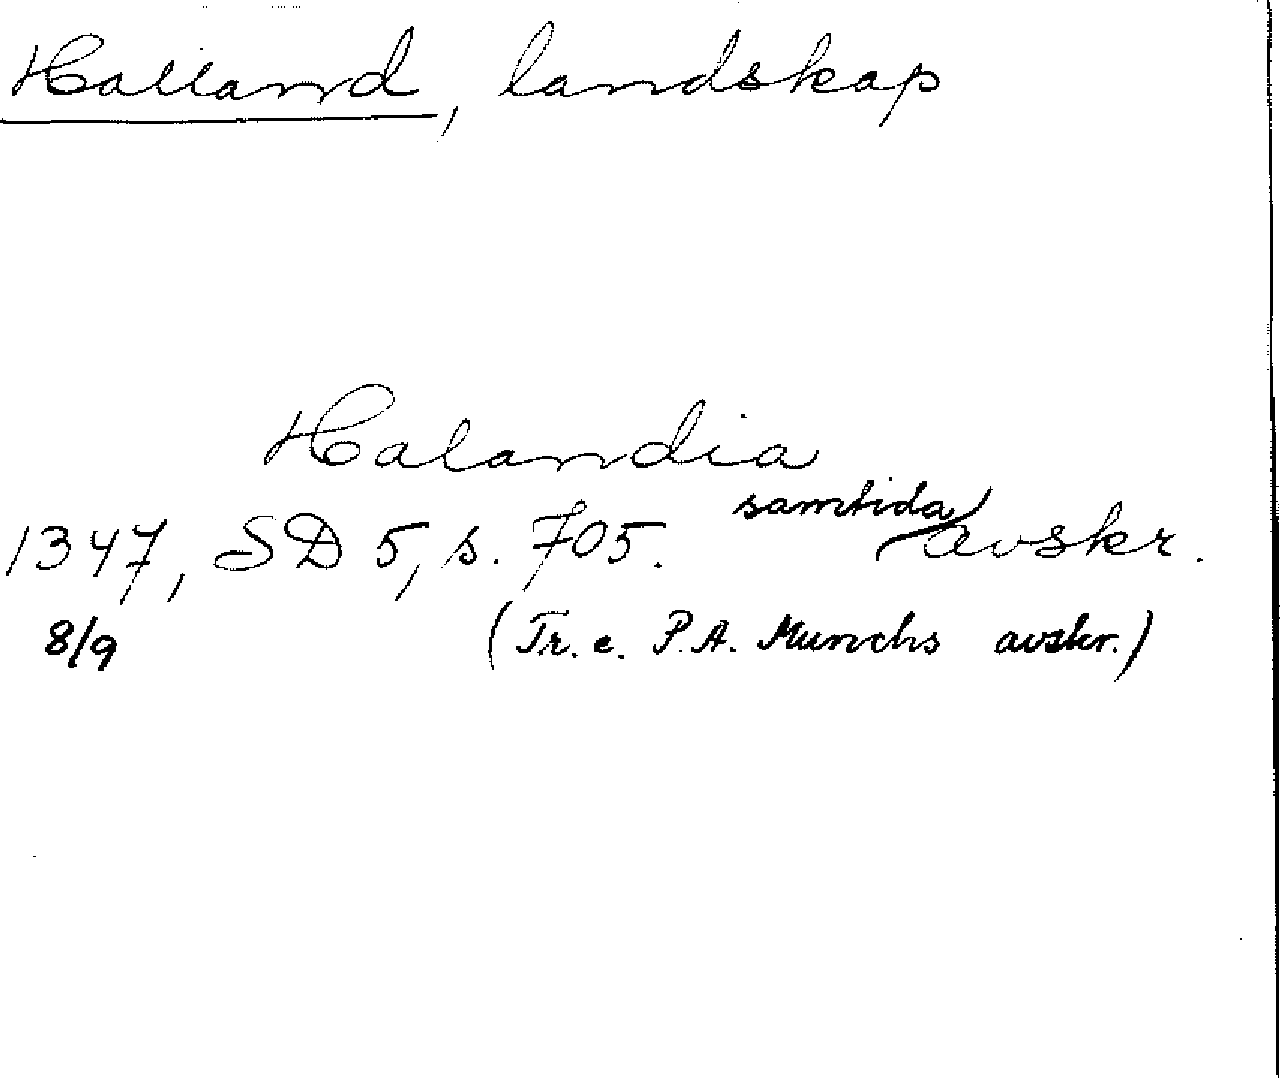 Halland, landskap
Halandia
1347, SD 5, s. 705. samtida avskr.
8/9 (Tr. e. P. A. Munchs avskr.)